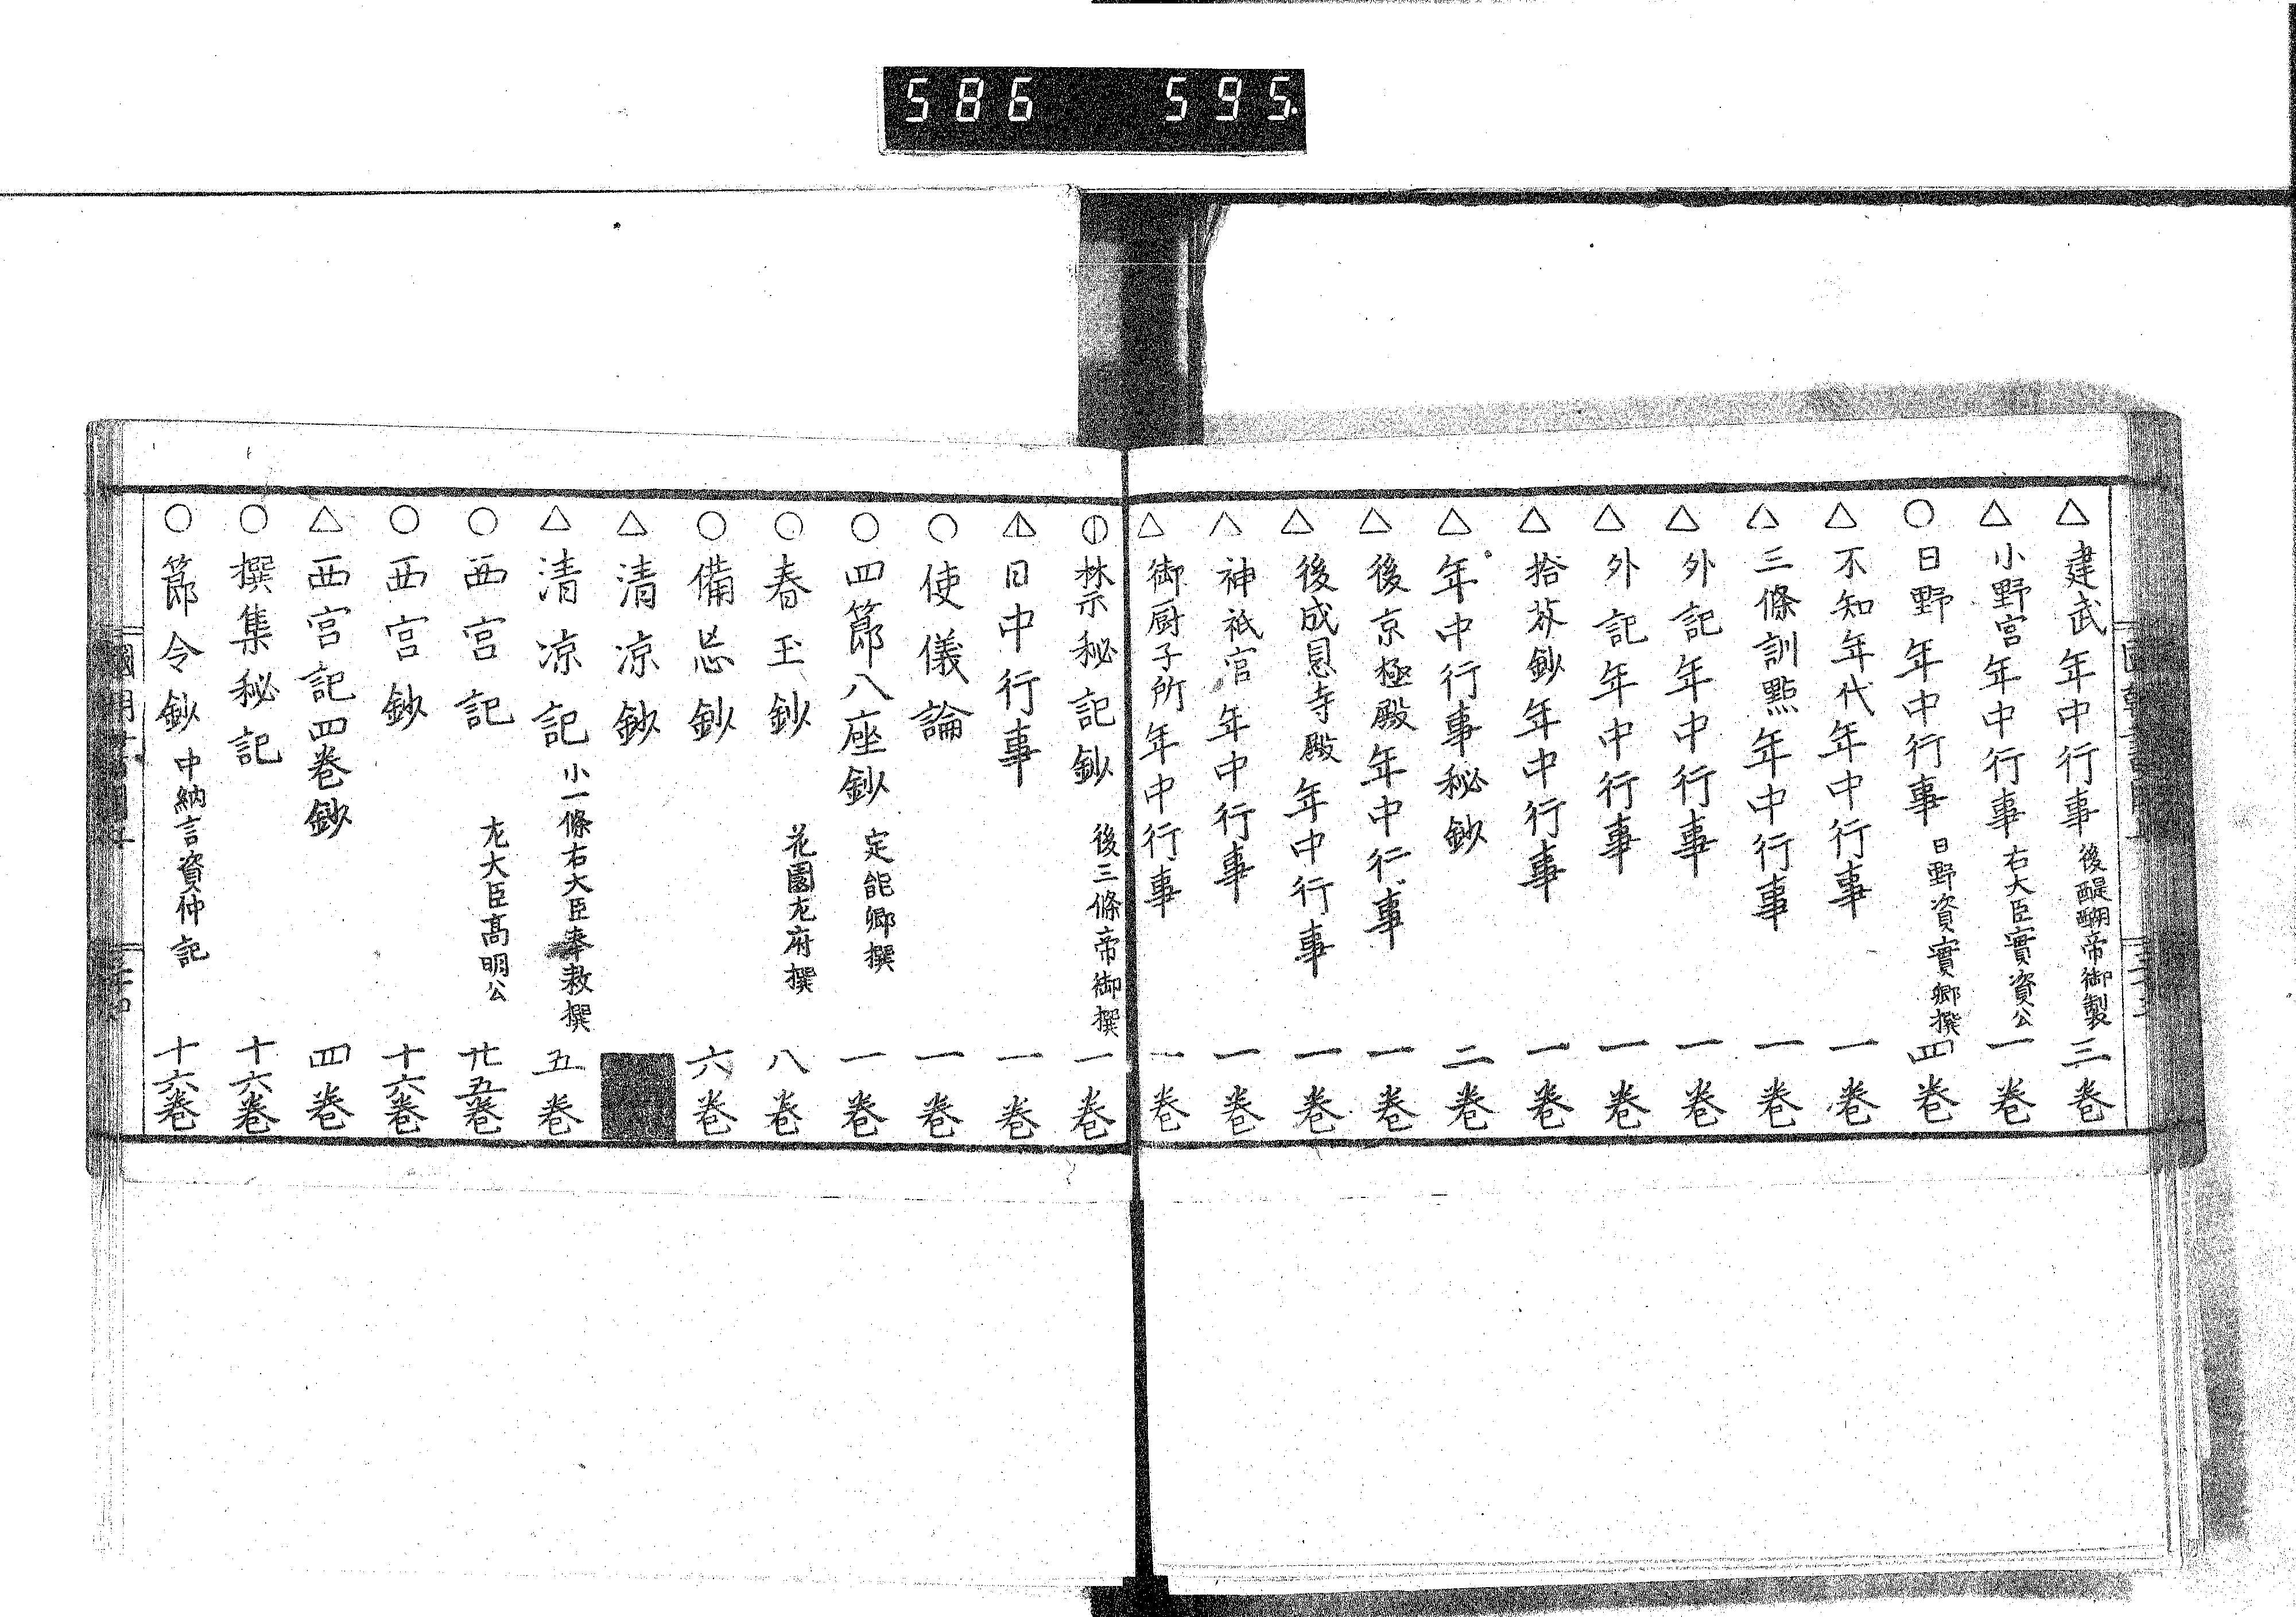 586 595.
△建武年中行事 後醍醐帝御製 三卷
△小野宮年中行事 右大臣實資公 一卷
○日野年中行事 日野資實卿撰 四卷
△不知年代年中行事 一卷
△三條訓點年中行事 一卷
△外記年中行事 一卷
△外記年中行事 一卷
△拾芥鈔年中行事 一卷
△年中行事秘鈔 二卷
△後京極殿年中行事 一卷
△後成恩寺殿年中行事 一卷
△神祇官年中行事 一卷
△御厨子所年中行事 一卷
禁秘記鈔 後三條帝御撰 一卷
日中行事 一卷
○使儀論 一卷
○四節八座鈔 定能卿撰 一卷
○春玉鈔 花園左府撰 八卷
○備忘鈔 六卷
△清凉鈔
△清凉記 小一條右大臣奉敕撰 五卷
○西宮記 左大臣高明公 廿五卷
○西宮鈔 十六卷
△西宮記四卷鈔 四卷
○撰集秘記 十六卷
○節令鈔 中納言資仲記 十六卷